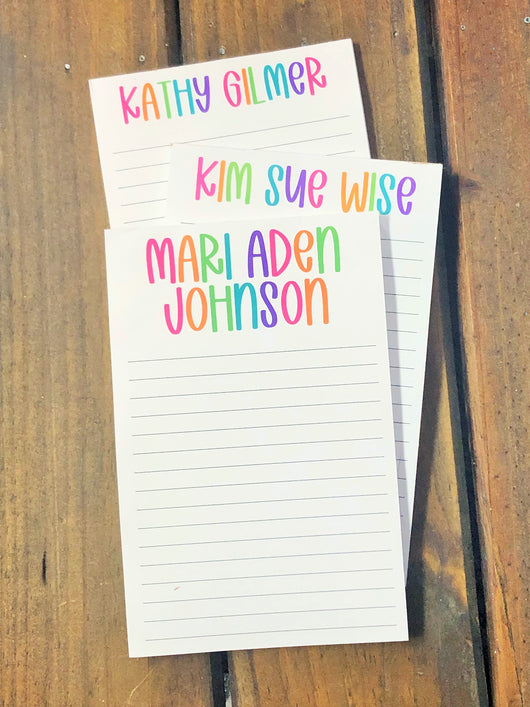 KATHY GILMER
KIM SUE WISE
MARI ADEN
JOHNSON